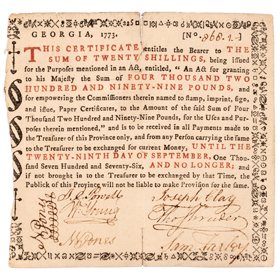 GEORGIA, 1773. [No. 868.1.]
THIS CERTIFICATE entitles the Bearer to THE
SUM OF TWENTY SHILLINGS, being issued
for the Purposes mentioned in an Act, entitled, "An Act for granting
to his Majesty the Sum of FOUR THOUSAND TWO
HUNDRED AND NINETY-NINE POUNDS, and
for empowering the Commissioners therein named to stamp, imprint, sign,
and issue, Paper Certificates, to the Amount of the said Sum of Four
Thousand Two Hundred and Ninety-Nine Pounds, for the Uses and Purposes
therein mentioned," and is to be received in all Payments made to
the Treasurer of this Province only, and from any Person carrying the same
to the Treasurer to be exchanged for current Money, UNTIL THE
TWENTY-NINTH DAY OF SEPTEMBER, One Thousand
Seven Hundred and Seventy-Six, AND NO LONGER; and
if not brought in to the Treasurer to be exchanged by that Time, the
Publick of this Province will not be liable to make Provision for the same.
Powell
Joseph Clay
W Young
N W Jones
Sam: Farley